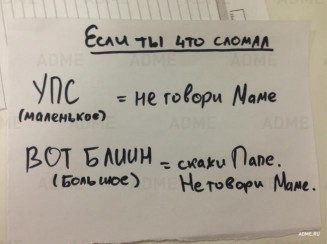 Если ты что сломал
УПС = не говори Маме
(маленькое)
ВОТ БЛИИН = скажи Папе.
(Большое) Не говори Маме.
ADME.RU